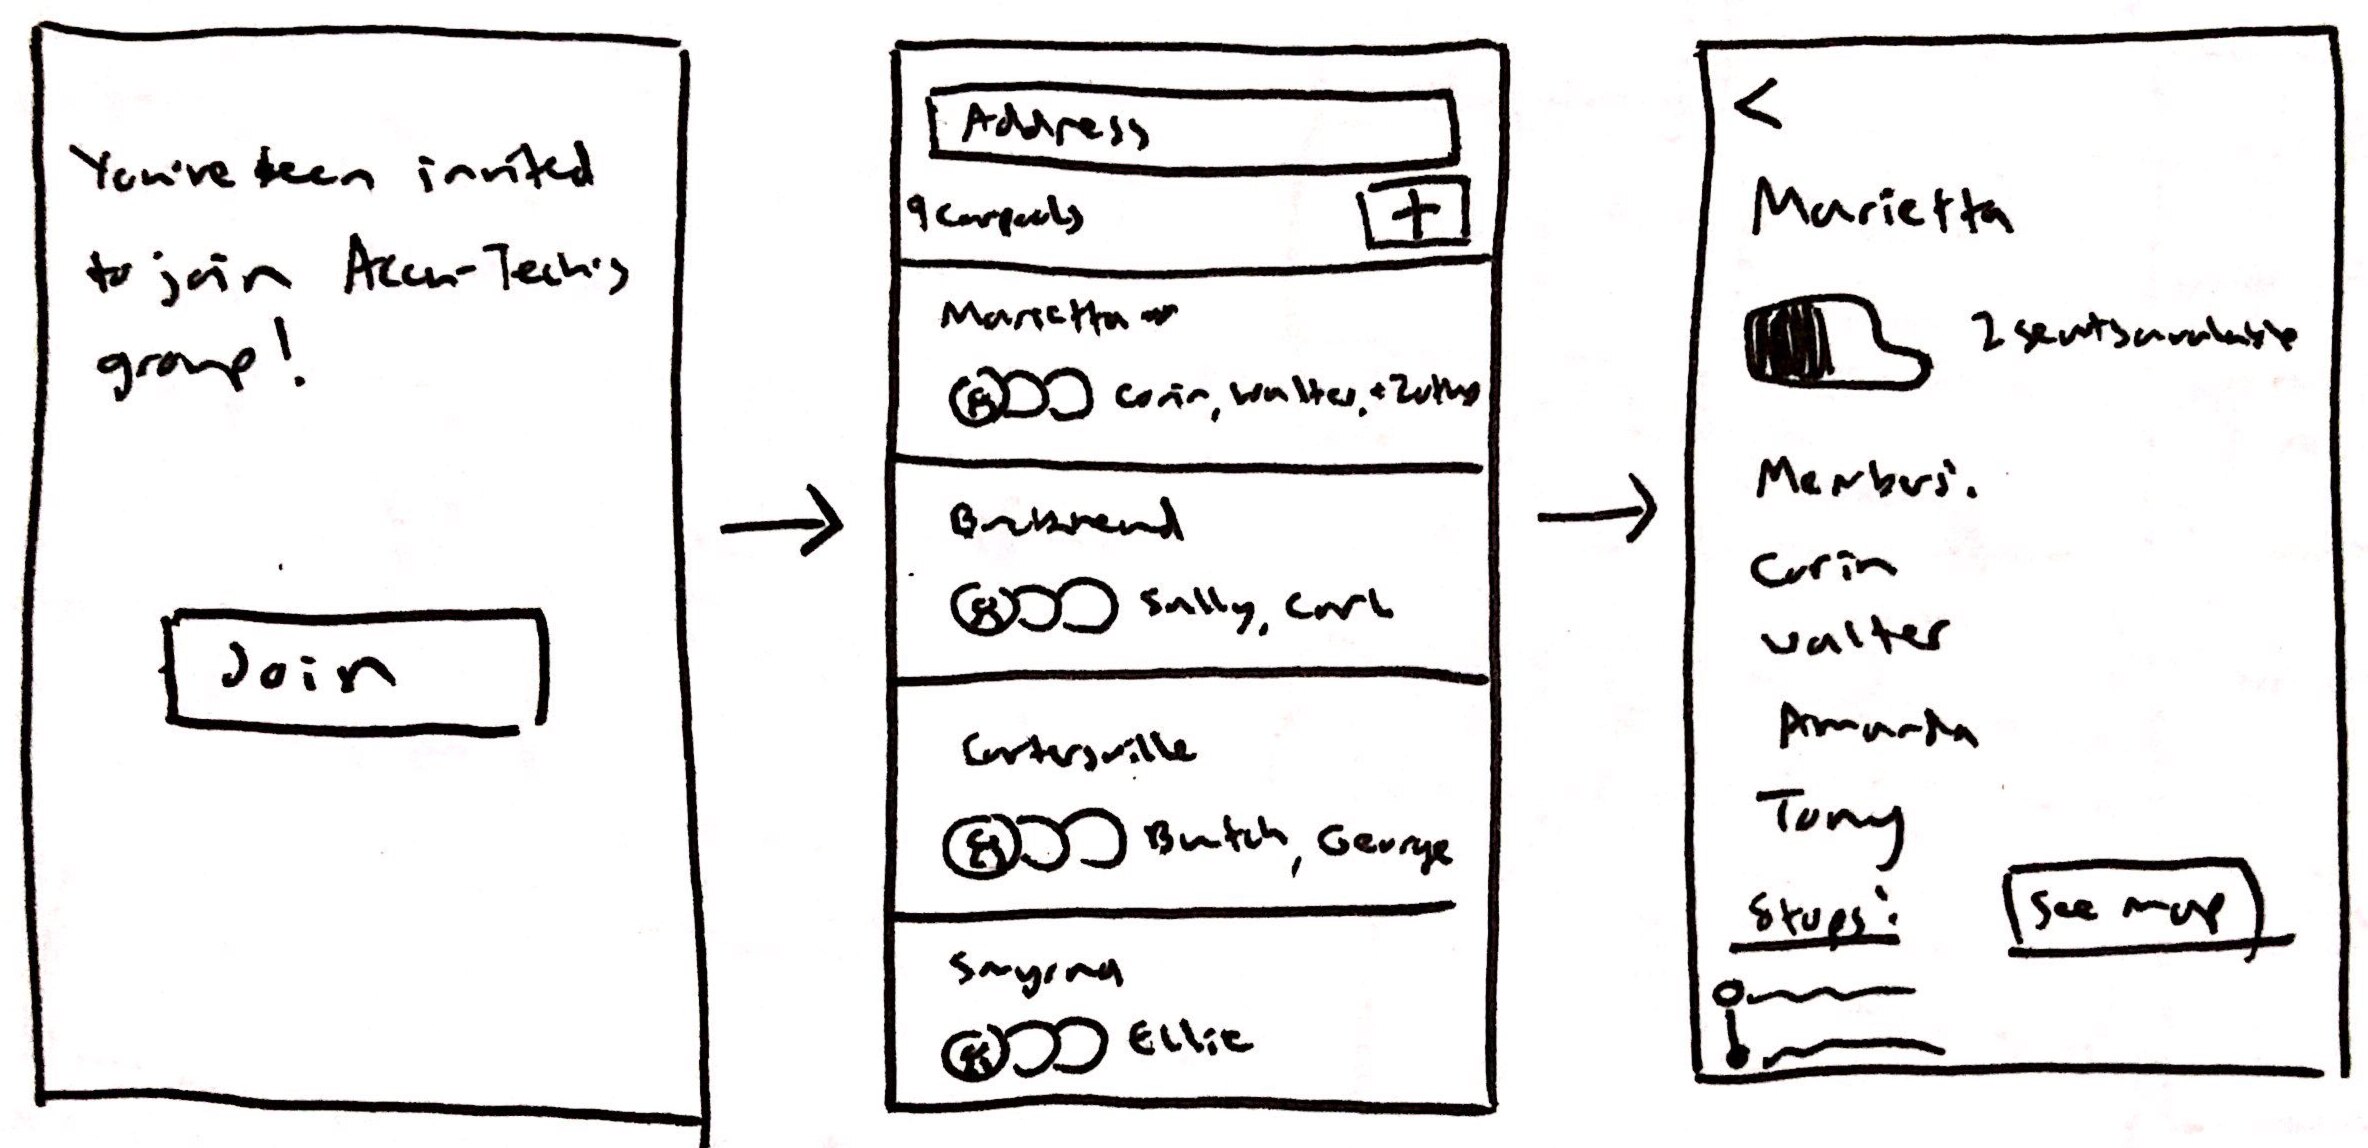 You've been invited
to join Accu-Tech's
group!
Join
Address
9 carpools
+
Marietta
Corin, Walter, +2 others
Buckhead
Sally, Carl
Cartersville
Butch, George
Smyrna
Ellie
<
Marietta
2 seats available
Members:
Corin
Walter
Amanda
Tony
Stops:
See map